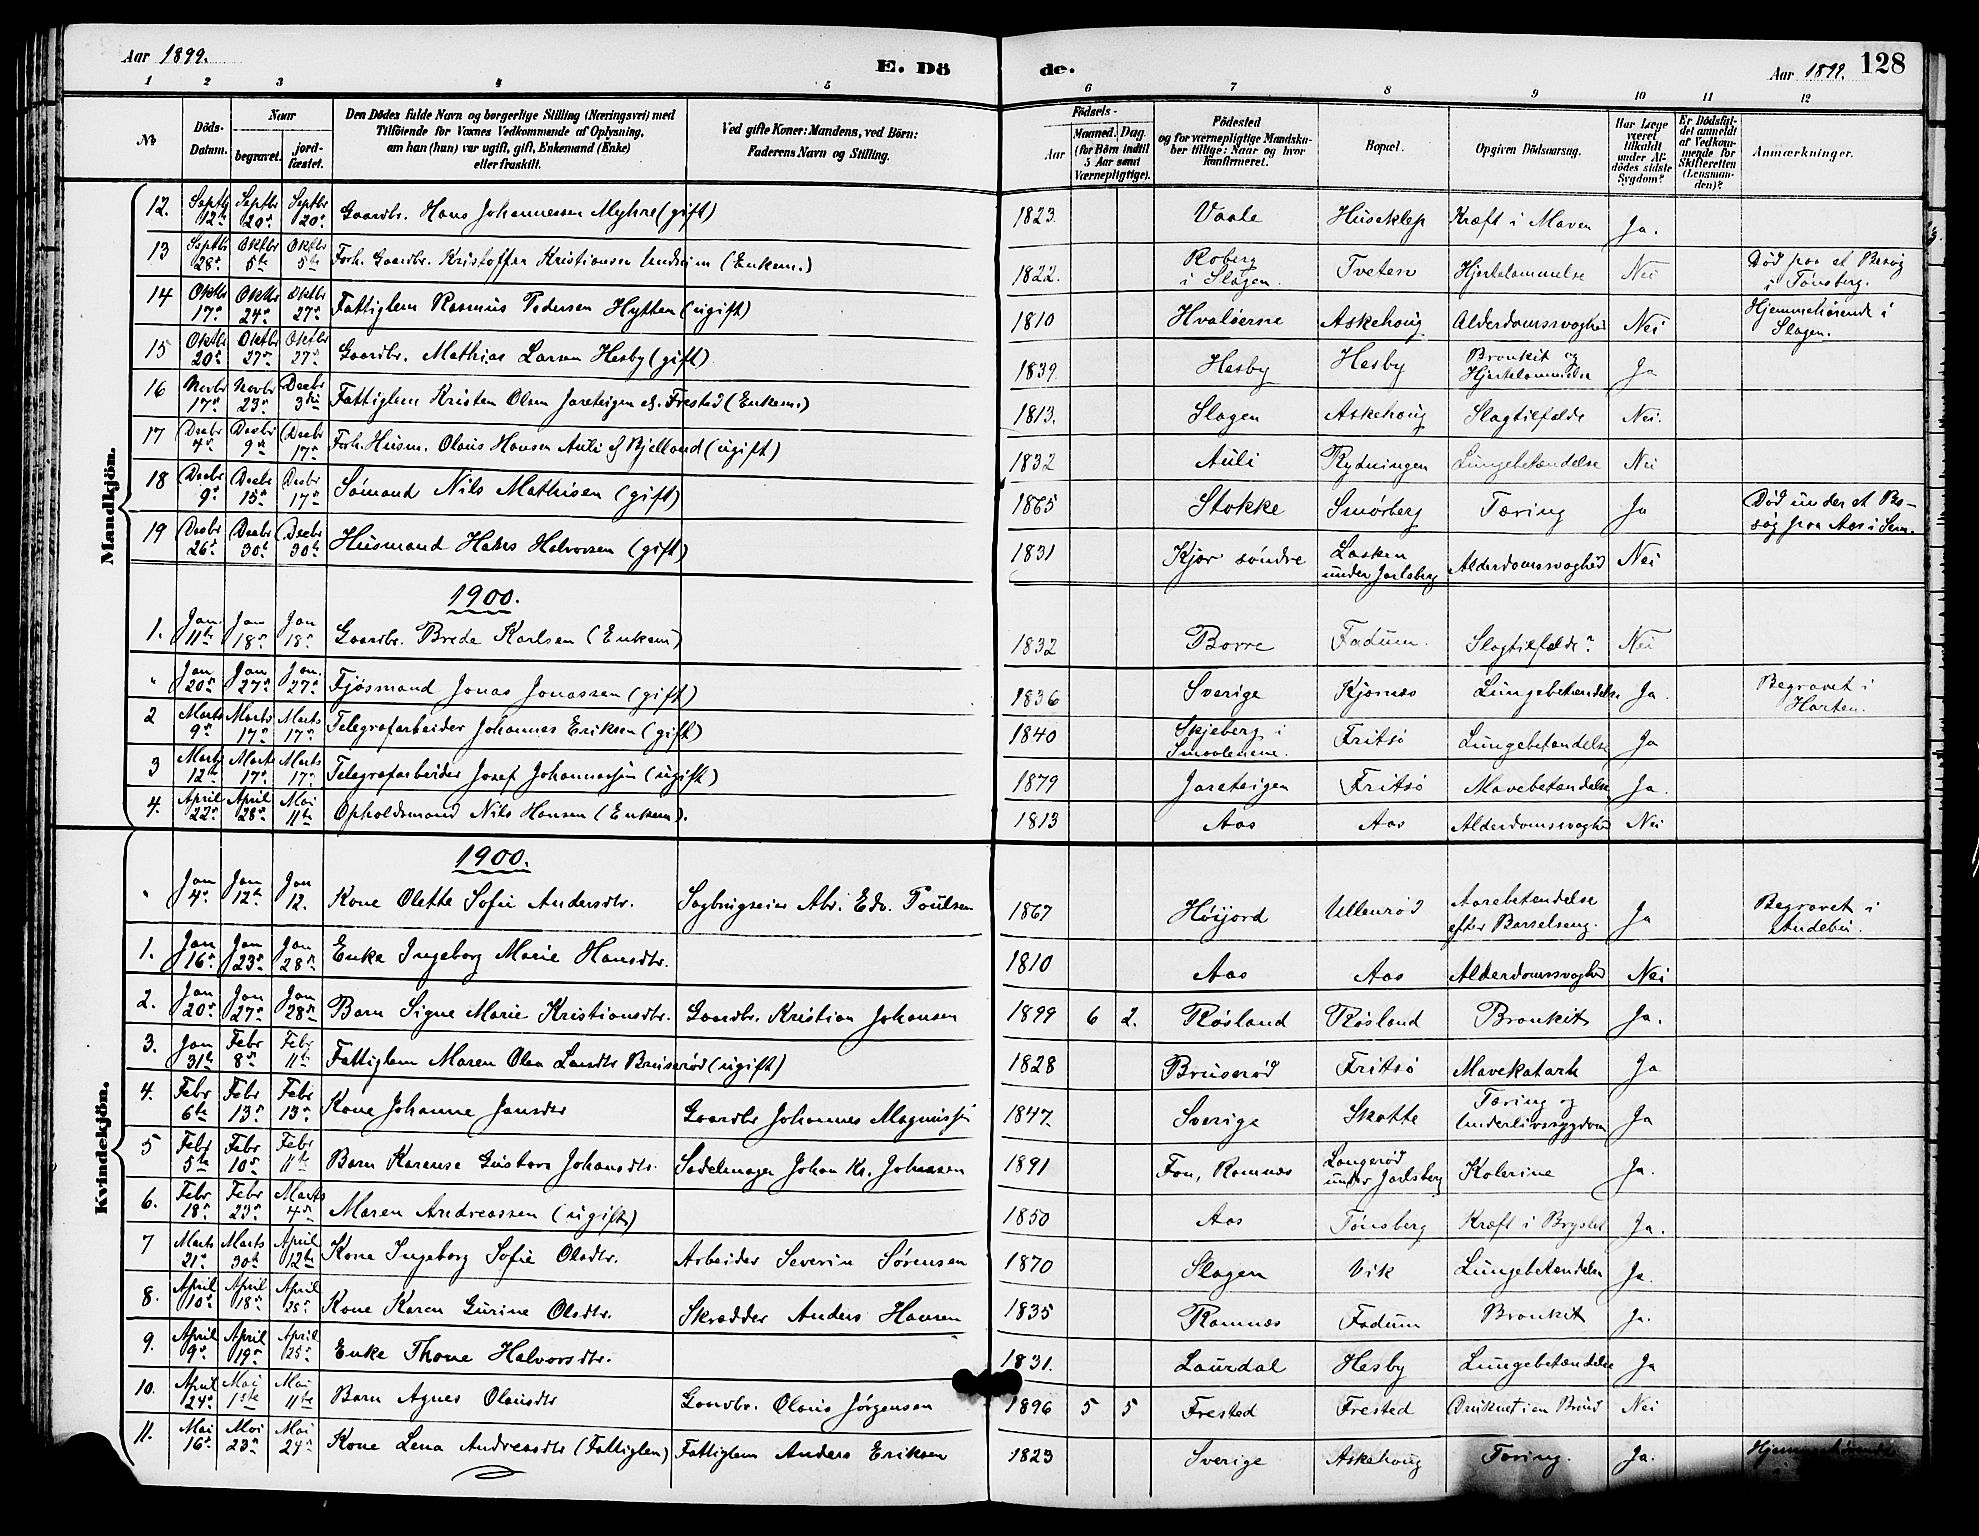 Aar 1899.
E. Dö
de.
Aar 1899.
128
1 2 3 4 5 6 7 8 9 10 11 12
No
Döds-Datum.
Naar
begravet.
jord-fæstet.
Den Dödes fulde Navn og borgerlige Stilling (Næringsvei) med
Tilföiende for Voxnes Vedkommende af Oplysning,
om han (hun) var ugift, gift, Enkemand (Enke)
eller fraskilt.
Ved gifte Koner: Mandens, ved Börn:
Faderens Navn og Stilling.
Födsels-
Aar
Maaned. Dag.
(for Börn indtil
5 Aar samt
Værnepligtige).
Födested
og for værnepligtige Mandska-
ber tillige: Naar og hvor
konfirmeret.
Bopæl.
Opgiven Dödsaarsag.
Har Læge
været
tilkaldt
under Af-
dödes sidste
Sygdom?
Er Dödsfal-
det anmeldt
af Vedkom-
mende for
Skifteretten
(Lensman-
den)?
Anmærkninger.
Mandkjön.
12. Septbr 12te Septbr 20de Septbr 20de Gaardbr. Hans Johannessen Myhre (gift) 1823. Vaale Huseklep Kræft i Maven Ja.
13 Septbr 28de Oktbr 5te Oktbr 5te Forh. Gaardbr. Kristoffer Kristiansen (Enkem.) 1822. Roberg i Slagen. Tveten Hjertelammelse Nei Död paa et Besøg i Tønsberg.
14 Oktbr 17de Oktbr 24de Oktbr 27de Fattiglem Rasmus Pedersen Hytten (ugift) 1810 Hvaløerne Askehoug Alderdomssvaghed Nei Hjemmehørende i Slagen.
15 Oktbr 20de Oktbr 27de Oktbr 27de Gaardbr. Mathias Larsen Hesby (gift) 1839. Hesby Hesby Bronkit og Hjertelammelse Ja
16 Novbr 17de Novbr 23de Decbr 3die Fattiglem Kristen Olsen Jareteigen af Frested (Enkem.) 1813. Slagen Askehoug Slagtilfælde Nei.
17 Decbr 4de Decbr 9de Decbr 17de Forh. Husm. Olaus Hansen Auli af Bjelland (ugift) 1832 Auli Rydningen Lungebetændelse Nei
18 Decbr 9de Decbr 15de Decbr 17de Sømand Nils Mathisen (gift) 1865 Stokke Smørberg Tæring Ja Død under et Be-søg paa Aas i Sem.
19 Decbr 26de Decbr 30te Decbr 30te Husmand Hans Halvorsen (gift) 1831 Kjær søndre Lasken under Jarlsberg Alderdomssvaghed Nei
1900.
1. Jan 11te Jan 18de Jan 18de Gaardbr. Brede Karlsen (Enkem) 1832 Borre Fadum. Slagtilfælde? Nei
" Jan 20de Jan 27de Jan. 27de Fjøsmand Jonas Jonassen (gift) 1836 Sverige Kjærnæs Lungebetændelse Ja. Begravet i Horten.
2 Marts 9de Marts 17de Marts 17de Telegrafarbeider Johannes Eriksen (gift) 1840 Skjeberg i Smaalenene. Fritsø Lungebetændelse Ja
3 Marts 12te Marts 17de Marts 17de Telegrafarbeider Josef Johannessen (ugift) 1879 Jareteigen Fritsø Mavebetændelse Ja.
4. April 22de April 28de Mai 11te Opholdsmand Nils Hansen (Enkem). 1813 Aas Aas Alderdomssvaghed Nei
Kvindekjön.
1900.
" Jan 4de Jan 12te Jan 12. Kone Olette Sofie Andersdtr. Sagbrugseier Abr. Edv. Poulsen 1867 Høijord Ullenrød Aarebetændelse efter Barselseng. Ja Begravet i Andebu.
1. Jan 16de Jan 23de Jan 28de Enke Ingeborg Marie Hansdtr. 1810 Aas Aas Alderdomssvaghed Nei
2. Jan 20de Jan 27de Jan 28de Barn Signe Marie Kristiansdtr. Gaardbr. Kristian Johansen 1899 6 2. Røsland Røsland Bronkit Ja.
3. Jan 31te Febr 8de Febr 11te Fattiglem Maren Olea Larsdtr Bruserød (ugift) 1828 Bruserød Fritsø Mavekatarh Ja
4. Febr 6te Febr 13de Febr 13de Kone Johanne Jansdtr Gaardbr Johannes Magnussen 1847. Sverige Skotte Tæring og Underlivssygdom Ja
5 Febr 5te Febr 10de Febr 11te Barn Karense Gustava Johansdtr. Sadelmager Johan Kr. Johnsen 1891 Fon, Ramnæs Langerød under Jarlsberg Kolerine Ja.
6. Febr 18de Febr 23de Marts 4de Maren Andreassen (ugift) 1850 Aas Tønsberg Kræft i Brystet Ja.
7 Marts 21de Marts 30te April 12te Kone Ingeborg Sofie Olsdtr. Arbeider Severin Sørensen 1870 Slagen Vik Lungebetændelse Ja.
8. April 10de April 18de April 25de Kone Karen Gurine Olsdtr. Skrædder Anders Hansen 1835 Ramnæs Fadum Bronkit Ja.
9. April 9de April 19de April 25de Enke Thone Halvorsdtr. 1831. Laurdal Hesby Lungebetændelse Ja
10. April 24de Mai 1ste Mai 11te Barn Agnes Olausdtr Gaardbr. Olaus Jørgensen 1896 5 5 Frested Frested Druknet i en Brønd Nei
11. Mai 16de Mai 23de Mai 24de Kone Lena Andreasdtr (Fattiglem) Fattiglem Anders Eriksen 1823 Sverige Askehoug Tæring. Ja. Hjemmehørende